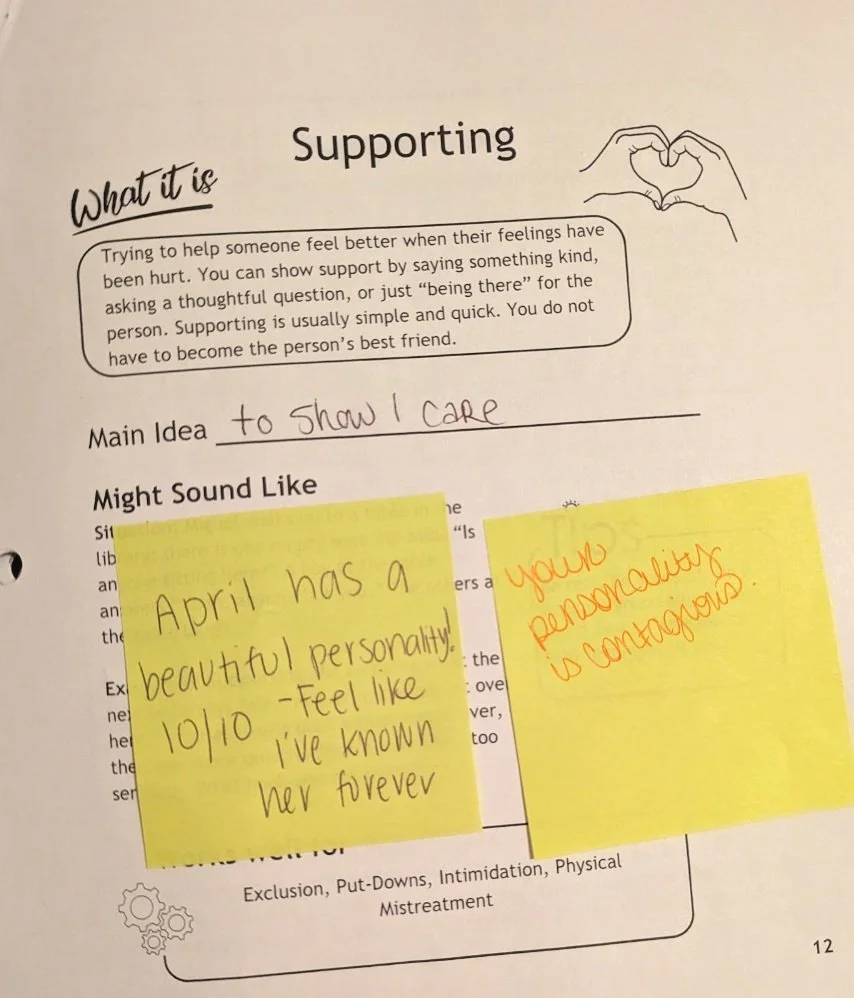 Supporting
What it is
Trying to help someone feel better when their feelings have
been hurt. You can show support by saying something kind,
asking a thoughtful question, or just “being there” for the
person. Supporting is usually simple and quick. You do not
have to become the person’s best friend.
Main Idea to show I care
Might Sound Like
“Is
ers a
the
ove
ver,
too
April has a
beautiful personality!
10/10 -Feel like
i've known
her forever
your
personality
is contagious.
Exclusion, Put-Downs, Intimidation, Physical
Mistreatment
12